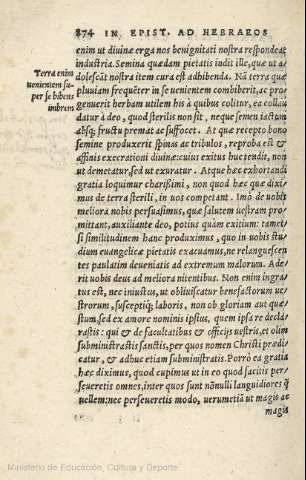 874 IN EPIST. AD HEBRAEOS
enim ut diuinæ erga nos benignitati nostra respondeat
industria. Semina quædam pietatis indit ille, quæ ut a-
Terra enim
uenientem su-
per se bibens
imbrem
dolescāt nostra item cura est adhibenda. Nā terra quæ
pluuiam frequēter in se uenientem combiberit, ac pro
genuerit herbam utilem his à quibus colitur, ea collau
datur à deo, quod sterilis non sit, neque semen iactum
absq; fructu premat ac suffocet. At quæ recepto bono
semine produxerit spinas ac tribulos, reproba est &
affinis execrationi diuinæ: cuius exitus huc tendit, non
ut demetatur, sed ut exuratur. Atque hæc exhortandi
gratia loquimur charissimi, non quod hæc quæ dixi-
mus de terra sterili, in uos competant. Imò de uobis
meliora nobis persuasimus, quæ salutem uestram pro-
mittant, auxiliante deo, potius quàm exitium: tamet-
si similitudinem hanc produximus, quo in uobis stu-
dium euangelicæ pietatis exacuamus, ne relanguescen-
tes paulatim deueniatis ad extremum malorum. Ade-
rit uobis deus ad meliora nitentibus. Non enim ingra-
tus est, nec iniustus, ut obliuiscatur benefactorum ue-
strorum, susceptiq; laboris, non ob gloriam aut quæ-
stum, sed ex amore nominis ipsius, quem ipsa re decla-
rastis: qui & de facultatibus & officijs uestris, et olim
subministrastis sanctis, per quos nomen Christi prædi-
catur, & adhuc etiam subministratis. Porrò ea gratia
hæc diximus, quod cupimus ut in eo quod facitis per-
seueretis omnes, inter quos sunt nōnulli languidiores q̄
uellem: nec perseueretis modo, uerumetiā ut magis ac
magis
Ministerio de Educación, Cultura y Deporte